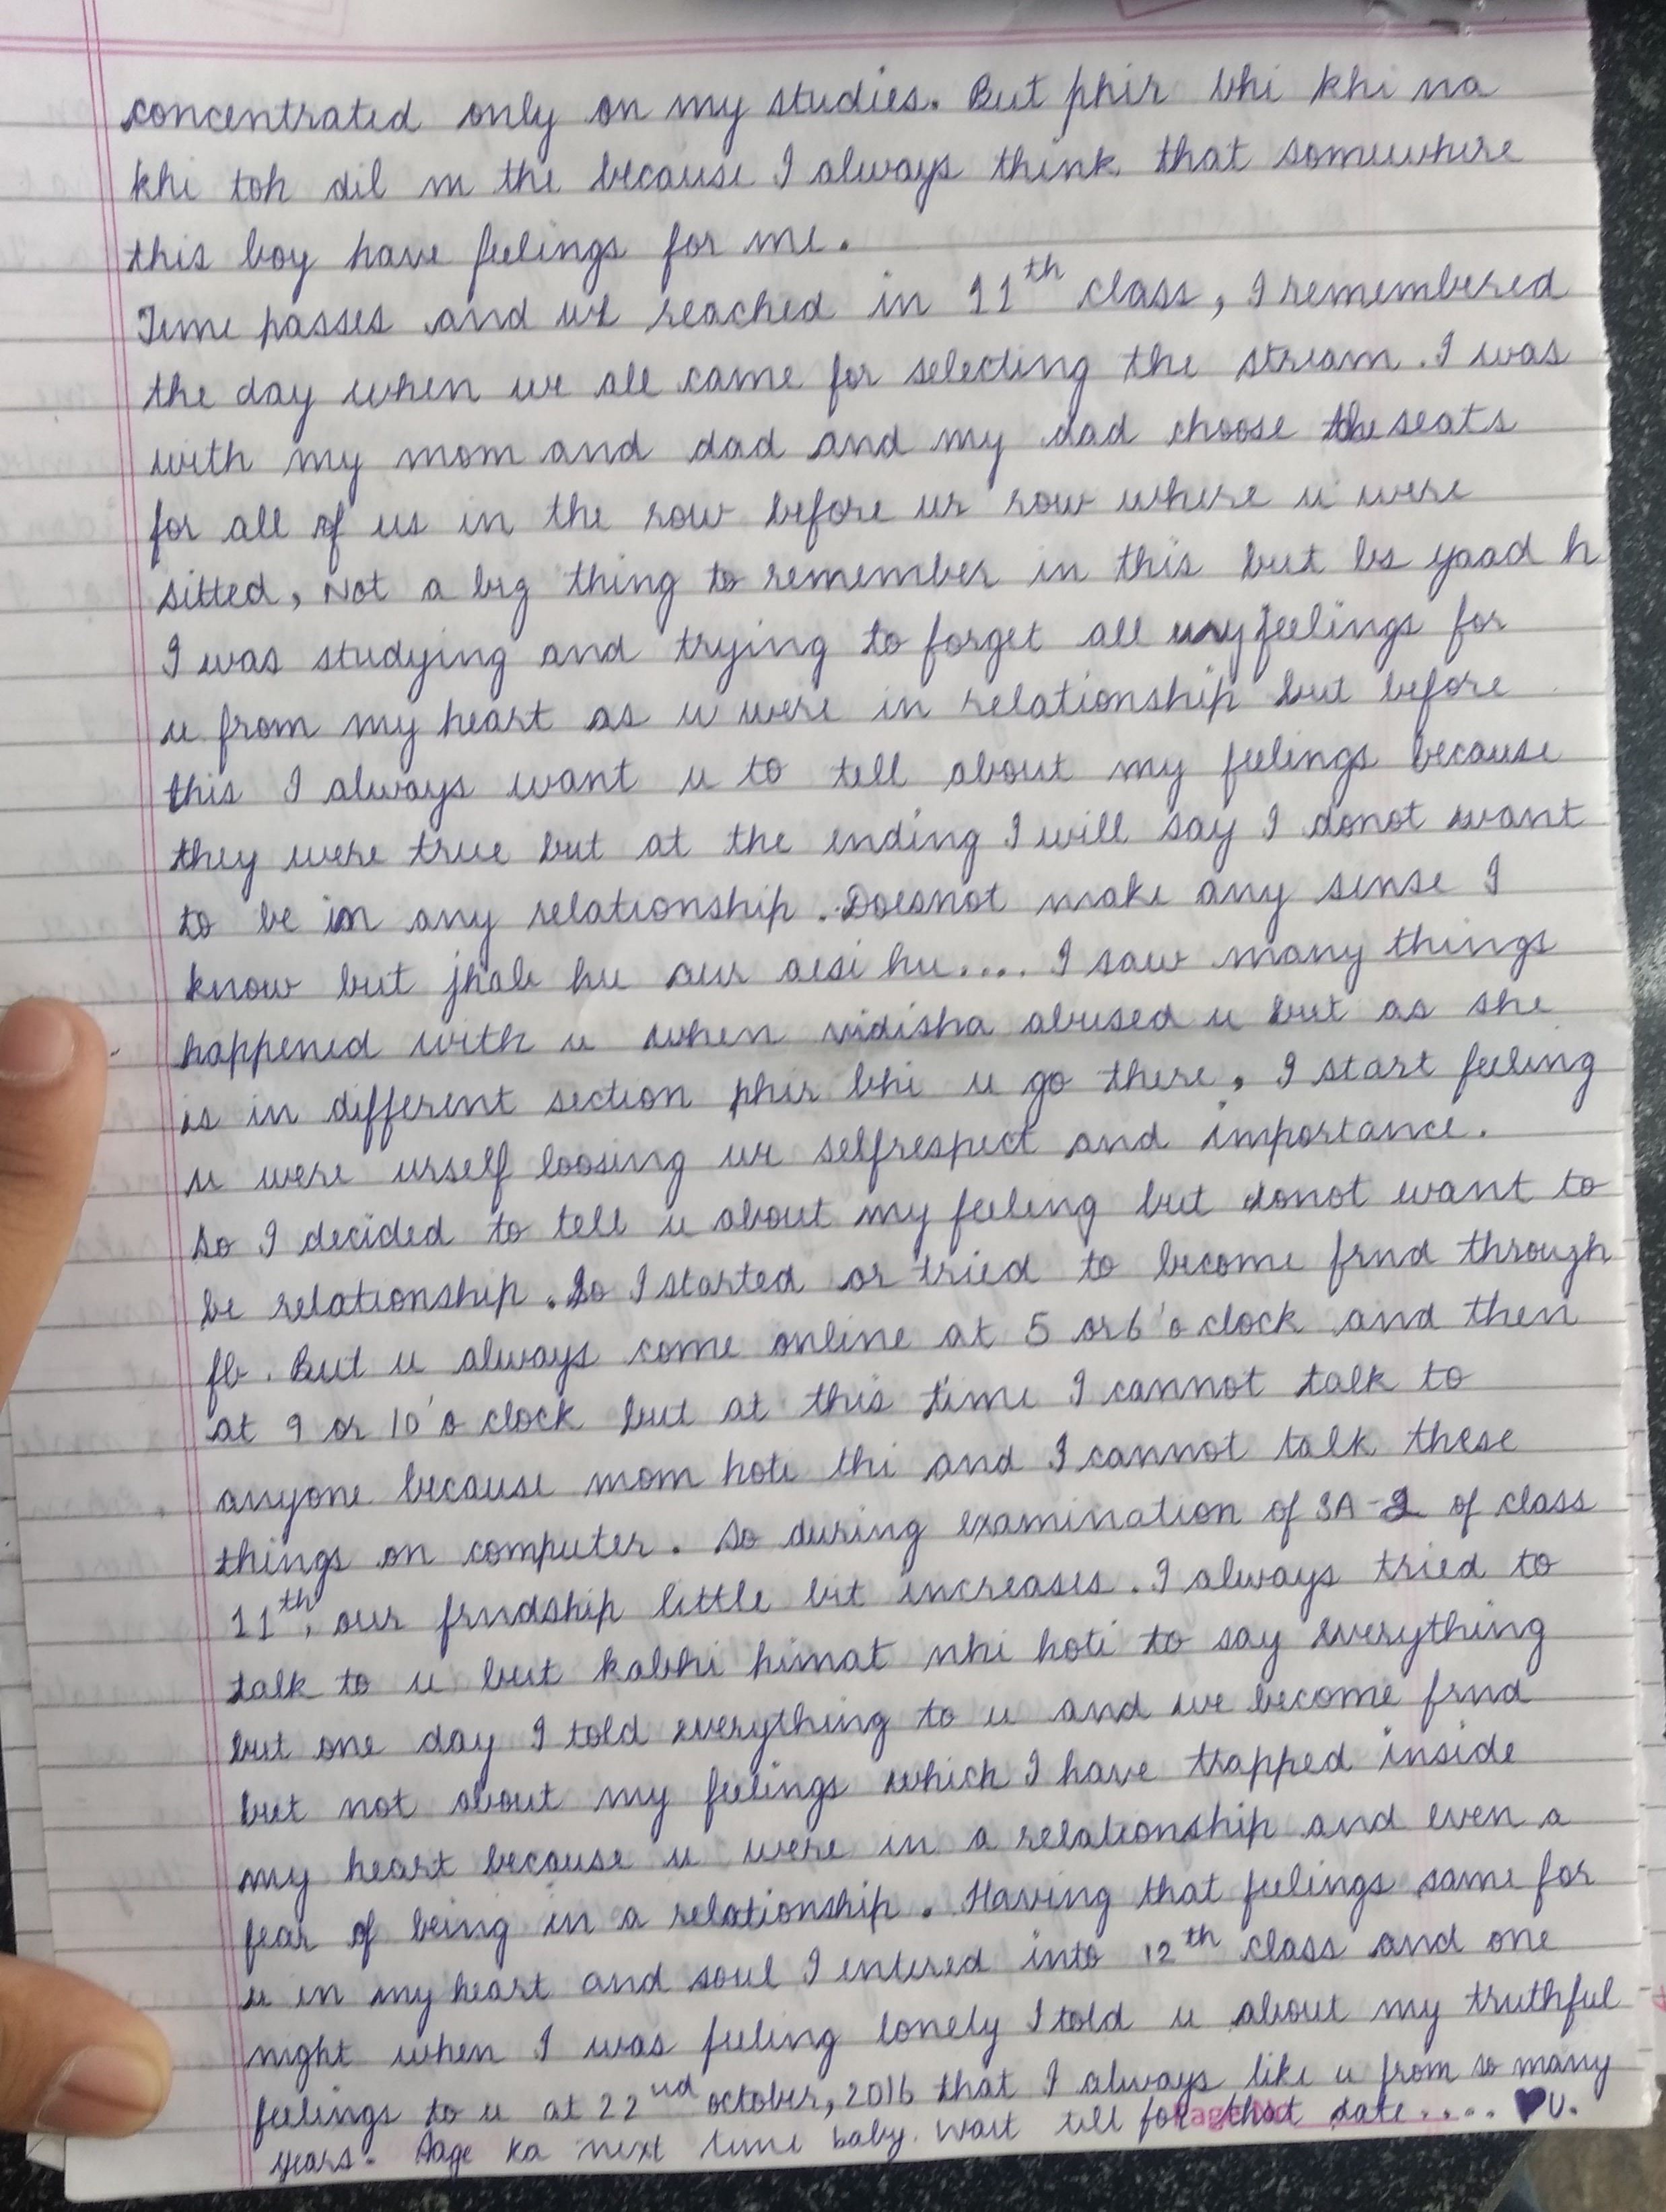 concentrated only on my studies. But phir bhi khi na
khi toh dil m the because I always think that somewhere
this boy have feelings for me.
Time passes and we reached in 11th class, I remembered
the day when we all came for selecting the stream. I was
with my mom and dad and my dad choose the seats
for all of us in the row before ur row where u were
sitted, Not a big thing to remember in this but bs yaad h
I was studying and trying to forget all my feelings for
u from my heart as u were in relationship but before
this I always want u to tell about my feelings because
they were true but at the ending I will say I donot want
to be in any relationship. Doesnot make any sense I
know but jhali hu aur aesi hu.... I saw many things
happened with u when vidisha abused u but as she
is in different section phir bhi u go there, I start feeling
u were urself loosing ur selfrespect and importance.
So I decided to tell u about my feeling but donot want to
be relationship. So I started or tried to become frnd through
fb. But u always come online at 5 or 6 'o clock and then
at 9 or 10 'o clock but at this time I cannot talk to
anyone because mom hoti thi and I cannot talk these
things on computer. So during examination of SA-2 of class
11th, our frndship little bit increases. I always tried to
talk to u but kabhi himat nhi hoti to say everything
but one day I told everything to u and we become frnd
but not about my feelings which I have trapped inside
my heart because u were in a relationship and even a
fear of being in a relationship. Having that feelings same for
u in my heart and soul I entered into 12th class and one
night when I was feeling lonely I told u about my truthful
feelings to u at 22nd october, 2016 that I always like u from so many
years. Aage ka next time baby. Wait till for that date.... ♥U.
Page No.